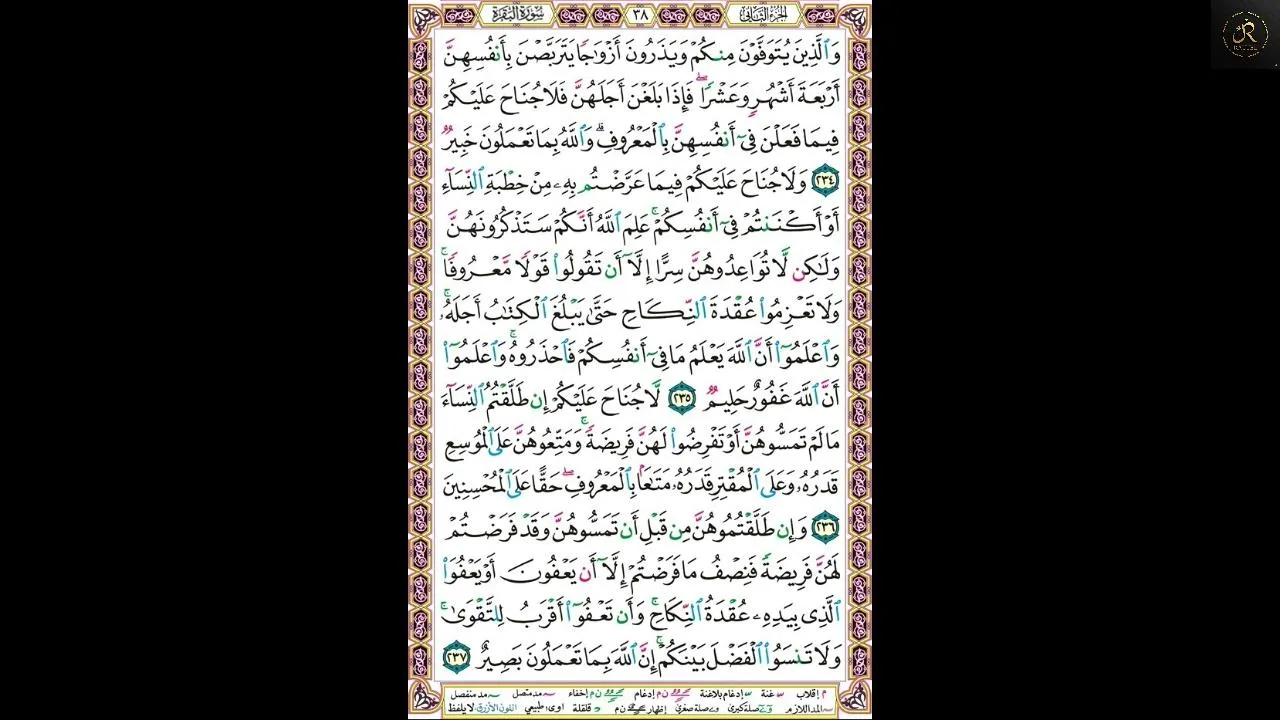 الجزء الثاني ٣٨ سورة البقرة
وَٱلَّذِينَ يُتَوَفَّوْنَ مِنكُمْ وَيَذَرُونَ أَزْوَٰجًا يَتَرَبَّصْنَ بِأَنفُسِهِنَّ
أَرْبَعَةَ أَشْهُرٍ وَعَشْرًاۖ فَإِذَا بَلَغْنَ أَجَلَهُنَّ فَلَا جُنَاحَ عَلَيْكُمْ
فِيمَا فَعَلْنَ فِىٓ أَنفُسِهِنَّ بِٱلْمَعْرُوفِۗ وَٱللَّهُ بِمَا تَعْمَلُونَ خَبِيرٌ
٢٣٤ وَلَا جُنَاحَ عَلَيْكُمْ فِيمَا عَرَّضْتُم بِهِۦ مِنْ خِطْبَةِ ٱلنِّسَآءِ
أَوْ أَكْنَنتُمْ فِىٓ أَنفُسِكُمْۚ عَلِمَ ٱللَّهُ أَنَّكُمْ سَتَذْكُرُونَهُنَّ
وَلَٰكِن لَّا تُوَاعِدُوهُنَّ سِرًّا إِلَّآ أَن تَقُولُوا۟ قَوْلًا مَّعْرُوفًاۚ
وَلَا تَعْزِمُوا۟ عُقْدَةَ ٱلنِّكَاحِ حَتَّىٰ يَبْلُغَ ٱلْكِتَٰبُ أَجَلَهُۥۚ
وَٱعْلَمُوٓا۟ أَنَّ ٱللَّهَ يَعْلَمُ مَا فِىٓ أَنفُسِكُمْ فَٱحْذَرُوهُۚ وَٱعْلَمُوٓا۟
أَنَّ ٱللَّهَ غَفُورٌ حَلِيمٌ ٢٣٥ لَّا جُنَاحَ عَلَيْكُمْ إِن طَلَّقْتُمُ ٱلنِّسَآءَ
مَا لَمْ تَمَسُّوهُنَّ أَوْ تَفْرِضُوا۟ لَهُنَّ فَرِيضَةًۚ وَمَتِّعُوهُنَّ عَلَى ٱلْمُوسِعِ
قَدَرُهُۥ وَعَلَى ٱلْمُقْتِرِ قَدَرُهُۥ مَتَٰعًۢا بِٱلْمَعْرُوفِۖ حَقًّا عَلَى ٱلْمُحْسِنِينَ
٢٣٦ وَإِن طَلَّقْتُمُوهُنَّ مِن قَبْلِ أَن تَمَسُّوهُنَّ وَقَدْ فَرَضْتُمْ
لَهُنَّ فَرِيضَةً فَنِصْفُ مَا فَرَضْتُمْ إِلَّآ أَن يَعْفُونَ أَوْ يَعْفُوَا۟
ٱلَّذِى بِيَدِهِۦ عُقْدَةُ ٱلنِّكَاحِۚ وَأَن تَعْفُوٓا۟ أَقْرَبُ لِلتَّقْوَىٰۚ
وَلَا تَنسَوُا۟ ٱلْفَضْلَ بَيْنَكُمْۚ إِنَّ ٱللَّهَ بِمَا تَعْمَلُونَ بَصِيرٌ ٢٣٧
م إقلاب غنة إدغام بلاغنة ن م إدغام ن م إخفاء مد متصل مد منفصل
المد اللازم صلة كبرى صلة صغرى إظهار ن م قلقلة اوى، طبيعي اللون الأزرق لا يلفظ